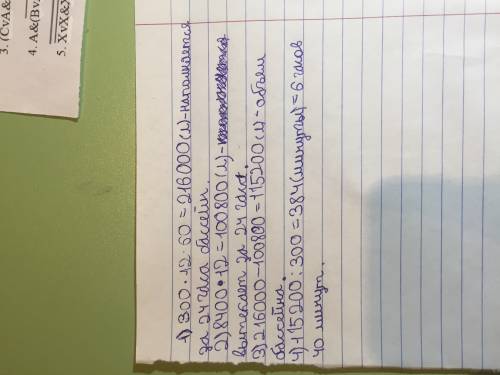 3. (CvA&
4. A&(Bv
5. XvX&
1) 300·12·60=216000(л)-наполняется
за 24 часа бассейн.
2) 8400·12=100800(л)-
вытекает за 24 часа.
3) 216000-100800=115200(л)-объем
бассейна.
4) 115200:300=384(минуты)=6 часов
40 минут.